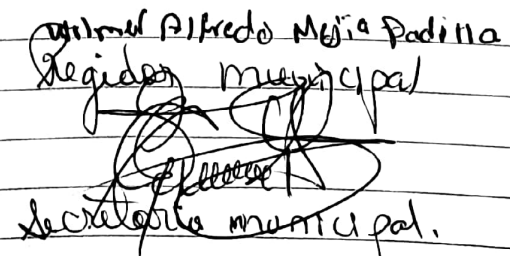 Wilmer Alfredo Mejia Padilla
Regidor municipal
Secretario municipal.